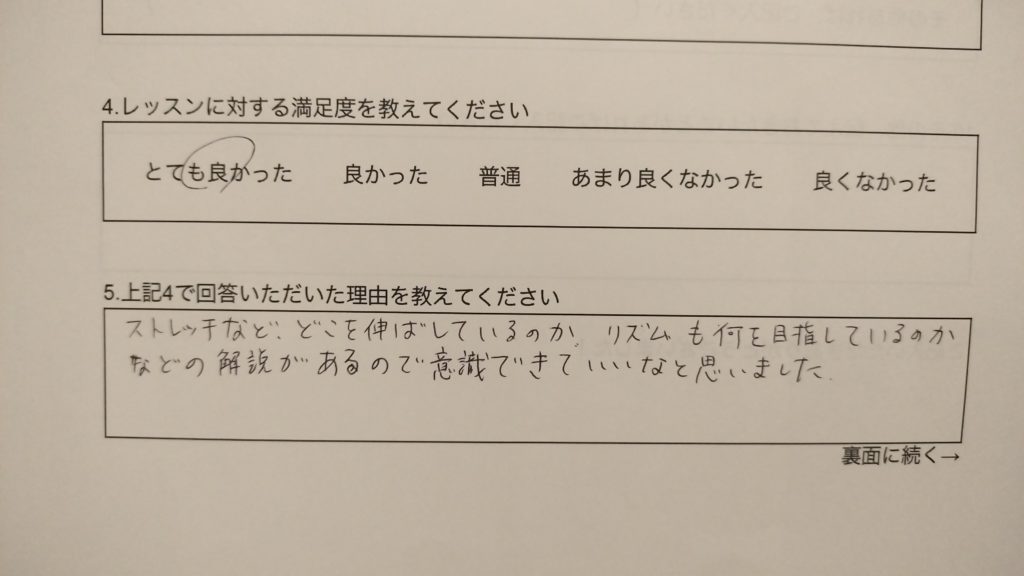 4.レッスンに対する満足度を教えてください
とても良かった 良かった 普通 あまり良くなかった 良くなかった
5.上記4で回答いただいた理由を教えてください
ストレッチなど、どこを伸ばしているのか、リズムも何を目指しているのか
などの解説があるので意識できていいなと思いました。
裏面に続く→